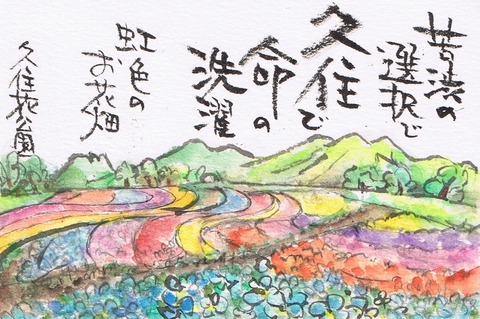 苦渋の
選択で
久住で
命の
洗濯
虹色の
お花畑
久住花公園